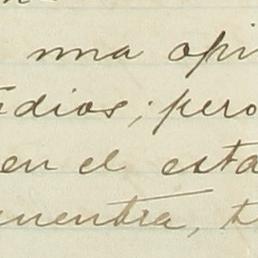 una opi
udios; pero
en el esta
uentra, t